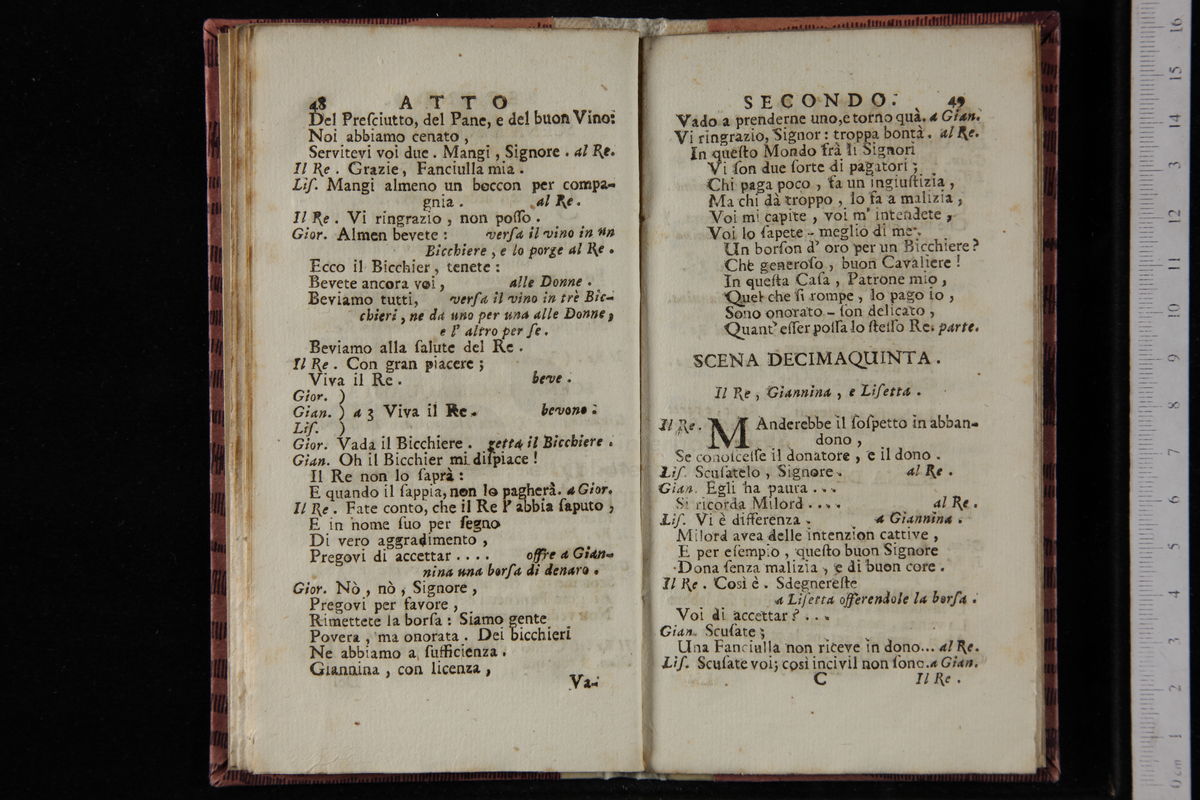 48 ATTO
Del Preſciutto, del Pane, e del buon Vino:
Noi abbiamo cenato,
Servitevi voi due. Mangi, Signore. al Re.
Il Re. Grazie, Fanciulla mia.
Liſ. Mangi almeno un boccon per compa-
gnia. al Re.
Il Re. Vi ringrazio, non poſſo.
Gior. Almen bevete: verſa il vino in un
Bicchiere, e lo porge al Re.
Ecco il Bicchier, tenete:
Bevete ancora voi, alle Donne.
Beviamo tutti, verſa il vino in trè Bic-
chieri, ne da uno per una alle Donne,
e l' altro per ſe.
Beviamo alla ſalute del Re.
Il Re. Con gran piacere;
Viva il Re. beve.
Gior. )
Gian. ) a 3 Viva il Re. bevono:
Liſ. )
Gior. Vada il Bicchiere. getta il Bicchiere.
Gian. Oh il Bicchier mi diſpiace!
Il Re non lo ſaprà:
E quando il ſappia, non lo pagherà. a Gior.
Il Re. Fate conto, che il Re l' abbia ſaputo,
E in nome ſuo per ſegno
Di vero aggradimento,
Pregovi di accettar .... offre a Gian-
nina una borſa di denaro.
Gior. Nò, nò, Signore,
Pregovi per favore,
Rimettete la borſa: Siamo gente
Povera, ma onorata. Dei bicchieri
Ne abbiamo a ſufficienza.
Giannina, con licenza,
Va-
SECONDO. 49
Vado a prenderne uno, e torno quà. a Gian.
Vi ringrazio, Signor: troppa bontà. al Re.
In queſto Mondo frà li Signori
Vi ſon due ſorte di pagatori;
Chi paga poco, fa un ingiuſtizia,
Ma chi dà troppo, lo fa a malizia,
Voi mi capite, voi m' intendete,
Voi lo ſapete - meglio di me.
Un borſon d' oro per un Bicchiere?
Che generoſo, buon Cavaliere!
In queſta Caſa, Patrone mio,
Quel che ſi rompe, lo pago io,
Sono onorato - ſon delicato,
Quant' eſſer poſſa lo ſteſſo Re. parte.
SCENA DECIMAQUINTA.
Il Re, Giannina, e Liſetta.
Il Re. MAnderebbe il ſoſpetto in abban-
dono,
Se conoſceſſe il donatore, e il dono.
Liſ. Scuſatelo, Signore. al Re.
Gian. Egli ha paura ...
Si ricorda Milord .... al Re.
Liſ. Vi è differenza. a Giannina.
Milord avea delle intenzion cattive,
E per eſempio, queſto buon Signore
Dona ſenza malizia, e di buon core.
Il Re. Così è. Sdegnereſte
a Liſetta offerendole la borſa.
Voi di accettar? ...
Gian. Scuſate;
Una Fanciulla non riceve in dono... al Re.
Liſ. Scuſate voi; così incivil non ſono. a Gian.
C Il Re.
0 cm 1 2 3 4 5 6 7 8 9 10 11 12 13 14 15 16